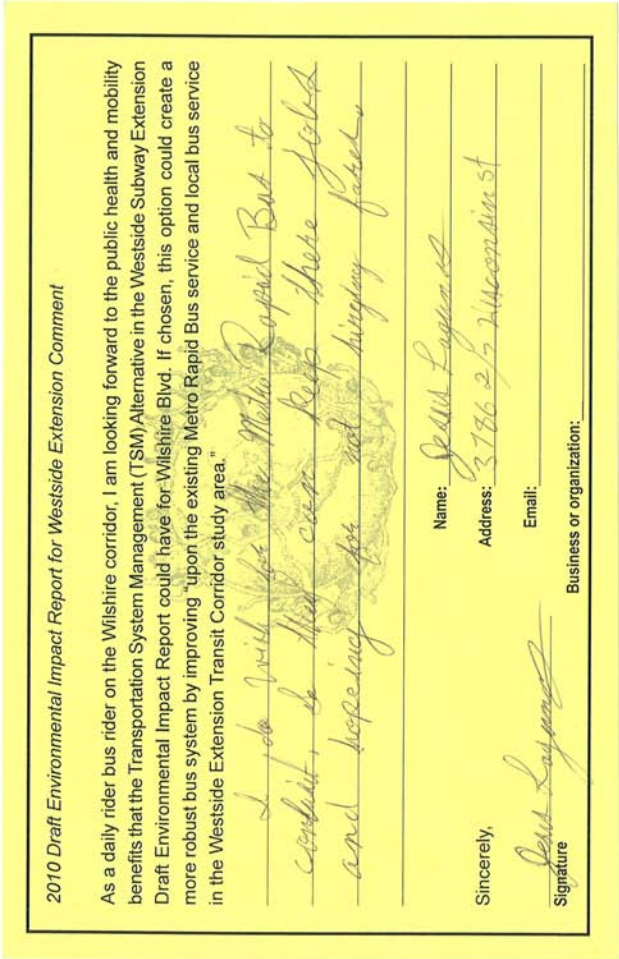 2010 Draft Environmental Impact Report for Westside Extension Comment
As a daily rider bus rider on the Wilshire corridor, I am looking forward to the public health and mobility
benefits that the Transportation System Management (TSM) Alternative in the Westside Subway Extension
Draft Environmental Impact Report could have for Wilshire Blvd. If chosen, this option could create a
more robust bus system by improving "upon the existing Metro Rapid Bus service and local bus service
in the Westside Extension Transit Corridor study area."
I do wish for the Metro Rapid Bus to
so they can keep there jobs
and hopeing for not hinging fares.
Name: Jesus Lagunas
Address: 3786 2/7 Wisconsin st
Email:
Business or organization:
Sincerely,
Jesus Lagunas
Signature